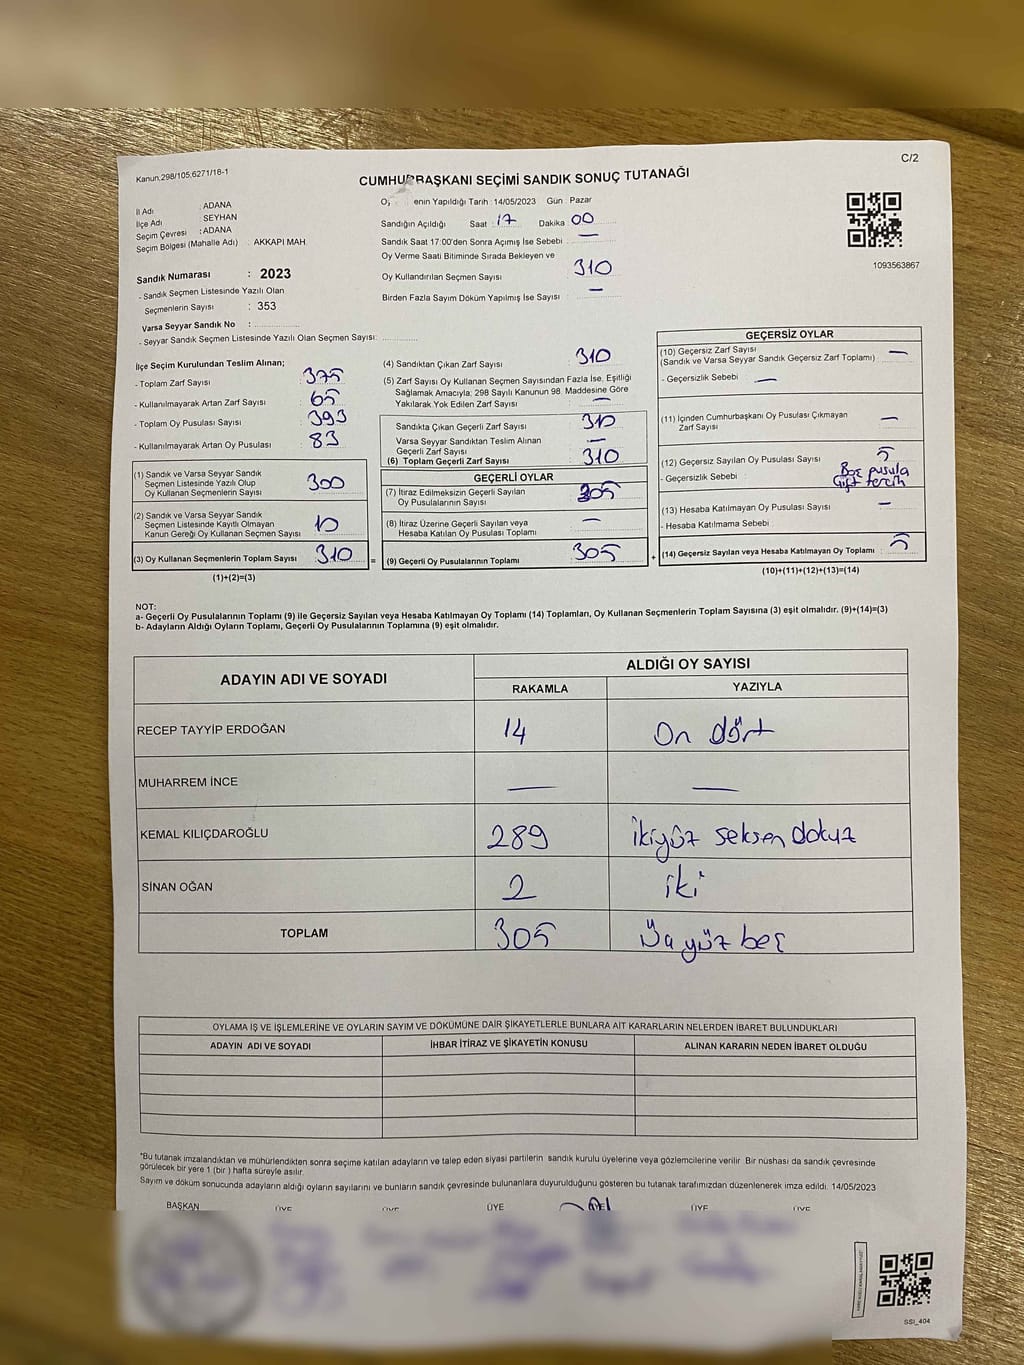 C/2
Kanun.298/105,6271/18-1
CUMHURBAŞKANI SEÇİMİ SANDIK SONUÇ TUTANAĞI
İl Adı : ADANA
İlçe Adı : SEYHAN
Seçim Çevresi : ADANA
Seçim Bölgesi (Mahalle Adı) : AKKAPI MAH.
Sandık Numarası : 2023
- Sandık Seçmen Listesinde Yazılı Olan
Seçmenlerin Sayısı : 353
Varsa Seyyar Sandık No :
- Seyyar Sandık Seçmen Listesinde Yazılı Olan Seçmen Sayısı:
O, enin Yapıldığı Tarih :14/05/2023 Gün : Pazar
Sandığın Açıldığı Saat : 17 Dakika 00
Sandık Saat 17:00'den Sonra Açımış İse Sebebi : —
Oy Verme Saati Bitiminde Sırada Bekleyen ve
Oy Kullandırılan Seçmen Sayısı : 310
Birden Fazla Sayım Döküm Yapılmış İse Sayısı : —
1093563867
İlçe Seçim Kurulundan Teslim Alınan;
- Toplam Zarf Sayısı : 375
- Kullanılmayarak Artan Zarf Sayısı : 65
- Toplam Oy Pusulası Sayısı : 393
- Kullanılmayarak Artan Oy Pusulası : 83
(1) Sandık ve Varsa Seyyar Sandık
Seçmen Listesinde Yazılı Olup
Oy Kullanan Seçmenlerin Sayısı : 300
(2) Sandık ve Varsa Seyyar Sandık
Seçmen Listesinde Kayıtlı Olmayan
Kanun Gereği Oy Kullanan Seçmen Sayısı : 10
(3) Oy Kullanan Seçmenlerin Toplam Sayısı : 310
(1)+(2)=(3)
(4) Sandıktan Çıkan Zarf Sayısı : 310
(5) Zarf Sayısı Oy Kullanan Seçmen Sayısından Fazla İse, Eşitliği
Sağlamak Amacıyla; 298 Sayılı Kanunun 98. Maddesine Göre
Yakılarak Yok Edilen Zarf Sayısı : —
Sandıkta Çıkan Geçerli Zarf Sayısı : 310
Varsa Seyyar Sandıktan Teslim Alınan
Geçerli Zarf Sayısı : —
(6) Toplam Geçerli Zarf Sayısı : 310
GEÇERLİ OYLAR
(7) İtiraz Edilmeksizin Geçerli Sayılan
Oy Pusulalarının Sayısı : 305
(8) İtiraz Üzerine Geçerli Sayılan veya
Hesaba Katılan Oy Pusulası Toplamı : —
=
(9) Geçerli Oy Pusulalarının Toplamı : 305
+
GEÇERSİZ OYLAR
(10) Geçersiz Zarf Sayısı : —
(Sandık ve Varsa Seyyar Sandık Geçersiz Zarf Toplamı)
- Geçersizlik Sebebi : —
(11) İçinden Cumhurbaşkanı Oy Pusulası Çıkmayan
Zarf Sayısı : —
(12) Geçersiz Sayılan Oy Pusulası Sayısı : 5
- Geçersizlik Sebebi : Boş pusula
Çift tercih
(13) Hesaba Katılmayan Oy Pusulası Sayısı : —
- Hesaba Katılmama Sebebi :
(14) Geçersiz Sayılan veya Hesaba Katılmayan Oy Toplamı : 5
(10)+(11)+(12)+(13)=(14)
NOT:
a- Geçerli Oy Pusulalarının Toplamı (9) ile Geçersiz Sayılan veya Hesaba Katılmayan Oy Toplamı (14) Toplamları, Oy Kullanan Seçmenlerin Toplam Sayısına (3) eşit olmalıdır. (9)+(14)=(3)
b- Adayların Aldığı Oyların Toplamı, Geçerli Oy Pusulalarının Toplamına (9) eşit olmalıdır.
ADAYIN ADI VE SOYADI
ALDIĞI OY SAYISI
RAKAMLA YAZIYLA
RECEP TAYYİP ERDOĞAN 14 On dört
MUHARREM İNCE — —
KEMAL KILIÇDAROĞLU 289 ikiyüz seksen dokuz
SİNAN OĞAN 2 iki
TOPLAM 305 Üç yüz beş
OYLAMA İŞ VE İŞLEMLERİNE VE OYLARIN SAYIM VE DÖKÜMÜNE DAİR ŞİKAYETLERLE BUNLARA AİT KARARLARIN NELERDEN İBARET BULUNDUKLARI
ADAYIN ADI VE SOYADI İHBAR İTİRAZ VE ŞİKAYETİN KONUSU ALINAN KARARIN NEDEN İBARET OLDUĞU
*Bu tutanak imzalandıktan ve mühürlendikten sonra seçime katılan adayların ve talep eden siyasi partilerin sandık kurulu üyelerine veya gözlemcilerine verilir. Bir nüshası da sandık çevresinde
görülecek bir yere 1 (bir ) hafta süreyle asılır.
Sayım ve döküm sonucunda adayların aldığı oyların sayılarını ve bunların sandık çevresinde bulunanlara duyurulduğunu gösteren bu tutanak tarafımızdan düzenlenerek imza edildi. 14/05/2023
BAŞKAN ÜYE ÜYE ÜYE ÜYE ÜYE ÜYE
SSI_404